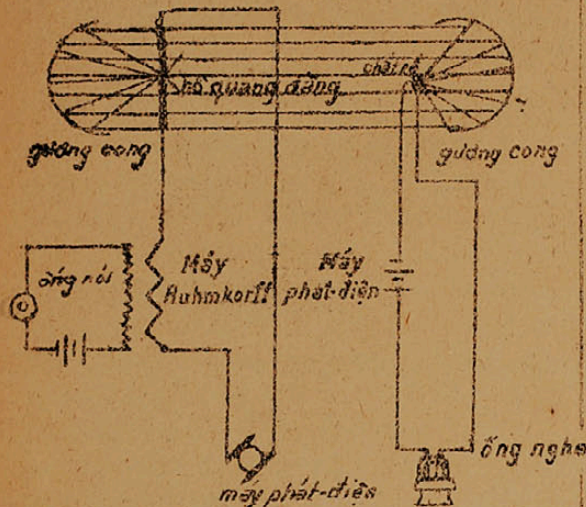 hồ quang đăng
gương cong
gương cong
ống nói
Máy
Ruhmkorff
Máy
phát-điện
ống nghe
máy phát-điện